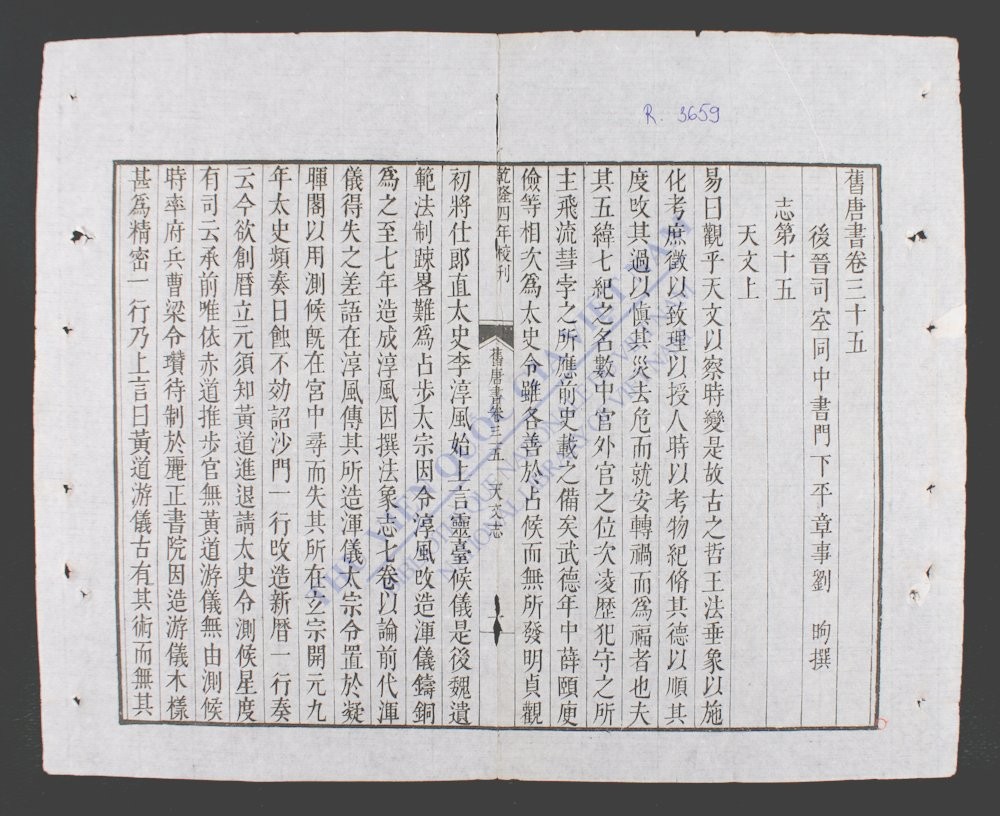 R. 3659
舊唐書卷三十五
後晉司空同中書門下平章事劉 昫撰
志第十五
天文上
易曰觀乎天文以察時變是故古之哲王法垂象以施
化考庶徵以致理以授人時以考物紀脩其德以順其
度改其過以愼其災去危而就安轉禍而爲福者也夫
其五緯七紀之名數中官外官之位次凌歷犯守之所
主飛流彗孛之所應前史載之備矣武德年中薛頤庾
儉等相次爲太史令雖各善於占候而無所發明貞觀
乾隆四年校刊
舊唐書卷三十五 天文志 一
初將仕郎直太史李淳風始上言靈臺候儀是後魏遺
範法制疎畧難爲占步太宗因令淳風改造渾儀鑄銅
爲之至七年造成淳風因撰法象志七卷以論前代渾
儀得失之差語在淳風傳其所造渾儀太宗令置於凝
暉閣以用測候旣在宮中尋而失其所在玄宗開元九
年太史頻奏日蝕不効詔沙門一行改造新曆一行奏
云今欲創曆立元須知黃道進退請太史令測候星度
有司云承前唯依赤道推步官無黃道游儀無由測候
時率府兵曹梁令瓚待制於麗正書院因造游儀木樣
甚爲精密一行乃上言曰黃道游儀古有其術而無其
THƯ VIỆN QUỐC GIA VIỆT NAM
BIBLIOTHÈQUE NATIONALE DU VIETNAM
NATIONAL LIBRARY OF VIETNAM